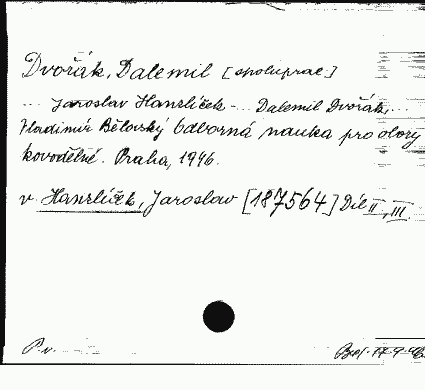 Dvořák, Dalemil [spoluprac.]
... Jaroslav Hanzlíček ... Dalemil Dvořák, ...
Vladimír Bělovský Odborná nauka pro obory
kovodělné. Praha, 1946.
v. Hanzlíček, Jaroslav [187564] Díl II, III.
P.v.